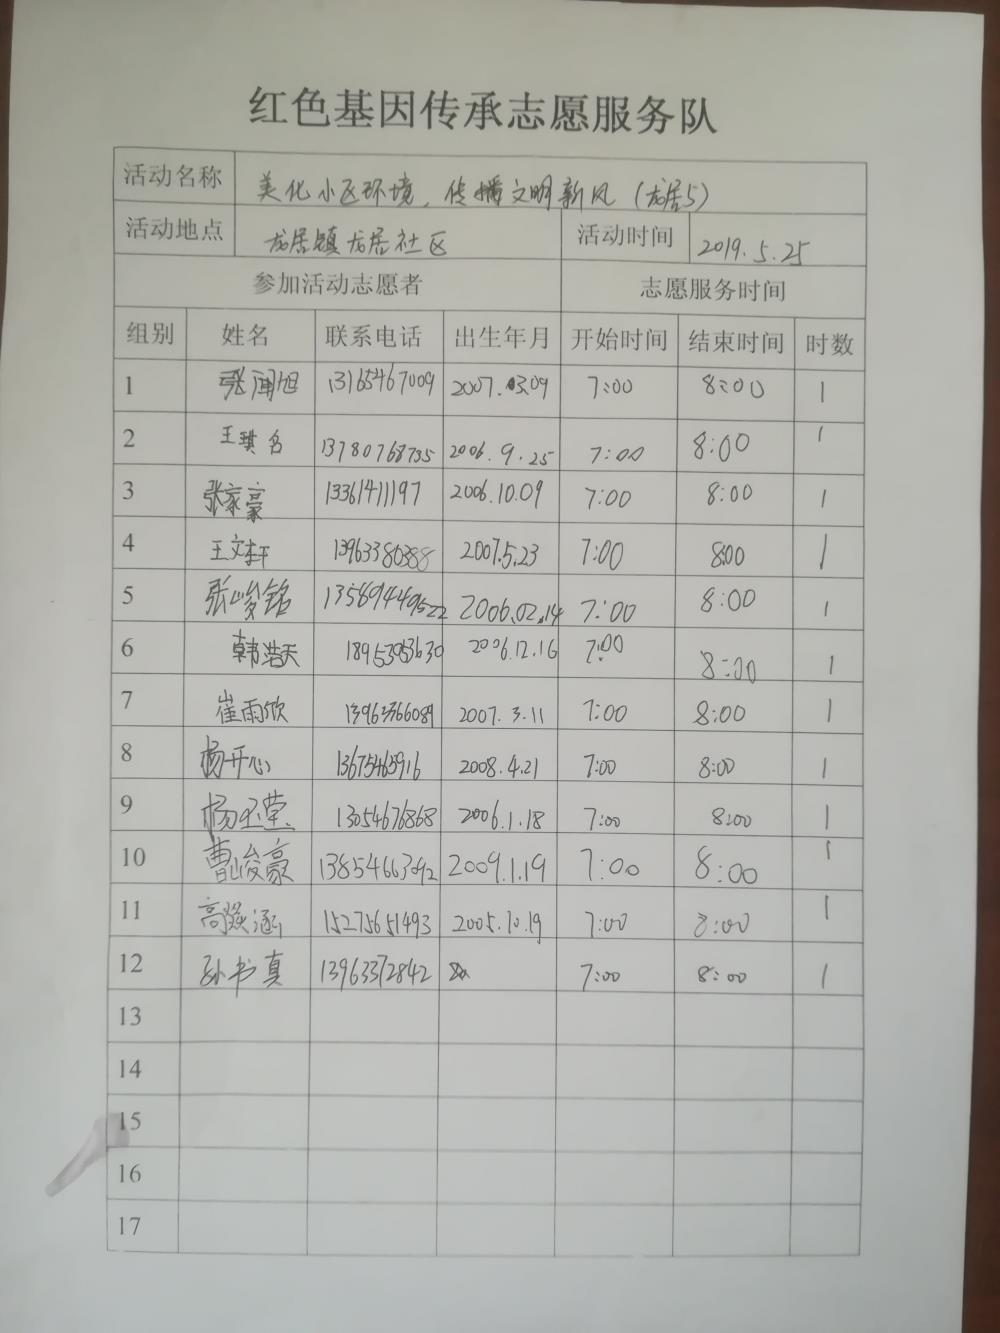 红色基因传承志愿服务队
活动名称 美化小区环境，传播文明新风（龙居5）
活动地点 龙居镇龙居社区 活动时间 2019.5.25
参加活动志愿者 志愿服务时间
组别 姓名 联系电话 出生年月 开始时间 结束时间 时数
1 张闻旭 13165467009 2007.03.09 7:00 8:00 1
2 王琪名 13780768735 2006.9.25 7:00 8:00 1
3 张家豪 13361411197 2006.10.09 7:00 8:00 1
4 王文轩 13963380388 2007.5.23 7:00 8:00 1
5 张峻铭 13589449522 2006.02.14 7:00 8:00 1
6 韩浩天 18953953630 2006.12.16 7:00 8:00 1
7 崔雨欣 13963366089 2007.3.11 7:00 8:00 1
8 杨开心 13675463916 2008.4.21 7:00 8:00 1
9 杨玉莹 13054676868 2006.1.18 7:00 8:00 1
10 曹峻豪 13854663392 2009.1.19 7:00 8:00 1
11 高 涵 15275651493 2005.10.19 7:00 8:00 1
12 孙书真 13963372842 7:00 8:00 1
13
14
15
16
17